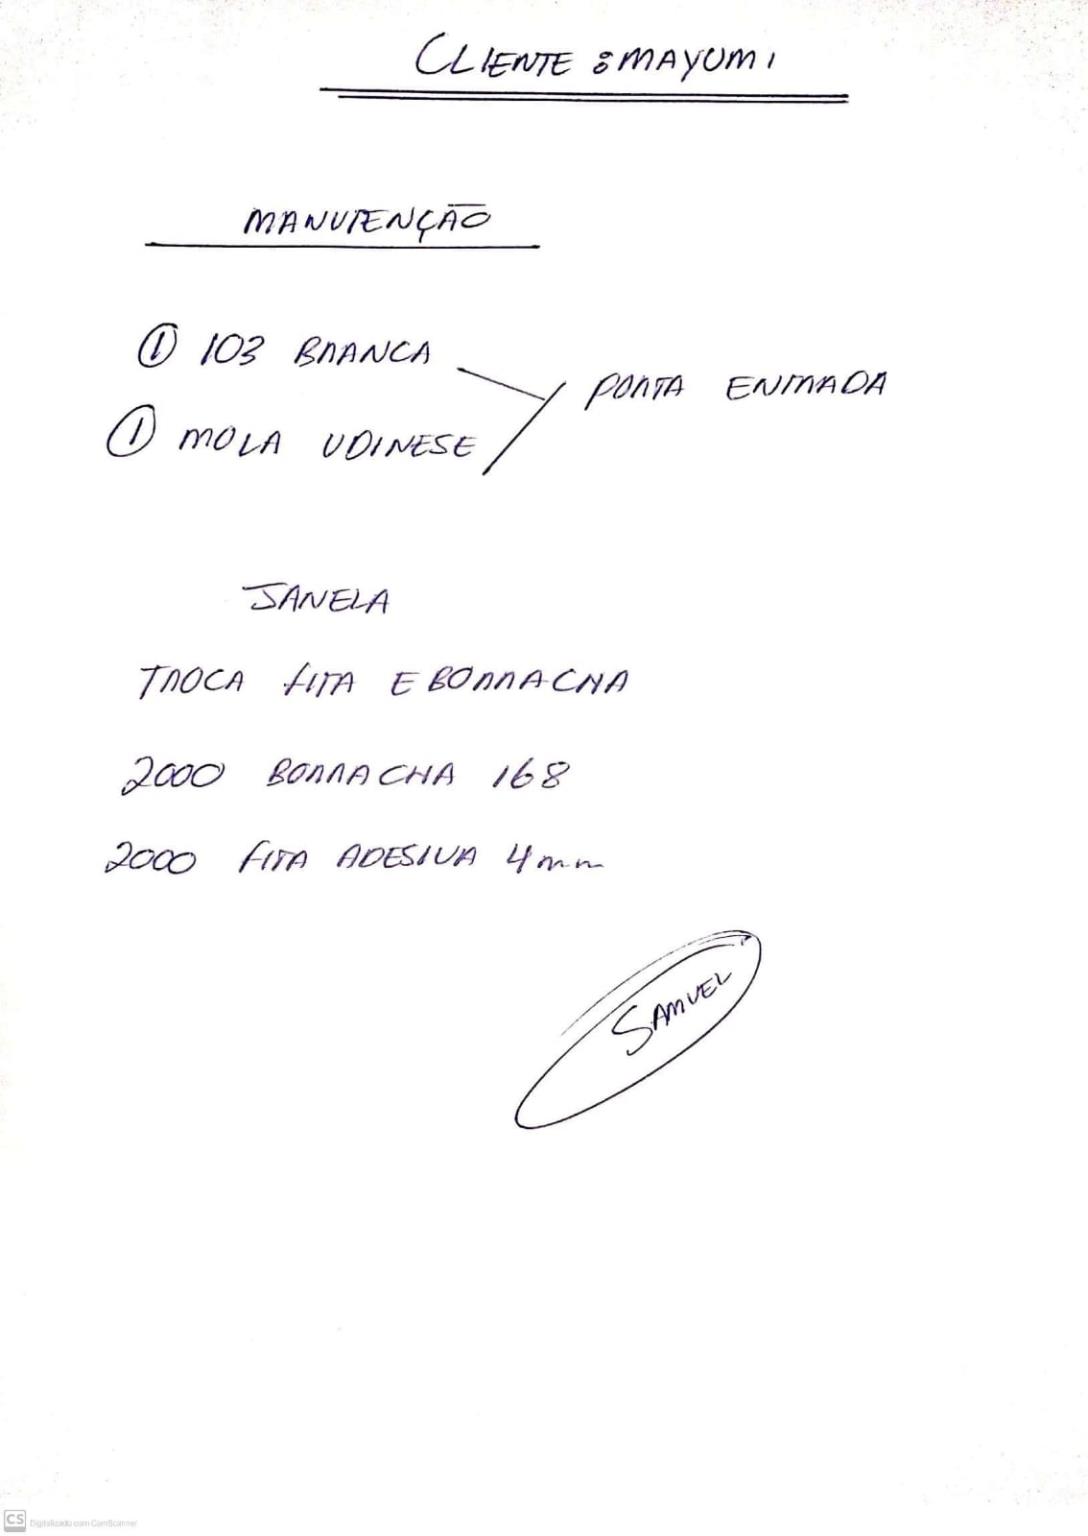 CLIENTE : MAYUMI
MANUTENÇÃO
① 103 BRANCA
① MOLA UDINESE
PORTA ENTRADA
JANELA
TROCA FITA E BORRACHA
2000 BORRACHA 168
2000 FITA ADESIVA 4mm
SAMUEL
CS Digitalizado com CamScanner